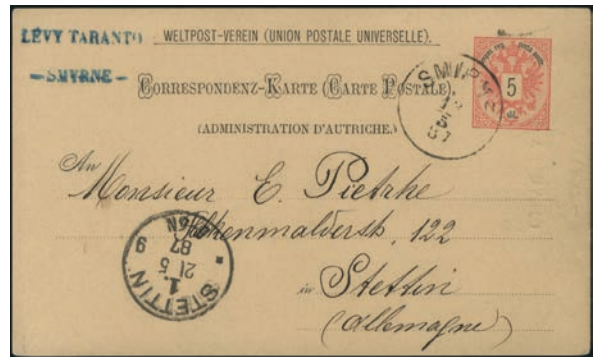 LÉVY TARANTO
— SMYRNE —
WELTPOST-VEREIN (UNION POSTALE UNIVERSELLE).
CORRESPONDENZ-KARTE (CARTE POSTALE)
(ADMINISTRATION D'AUTRICHE.)
SMIRNE
5
87
5
An
Monsieur E. Pietzke
122
in Stettin
(Allemagne)
STETTIN
1.
21 5
87
9